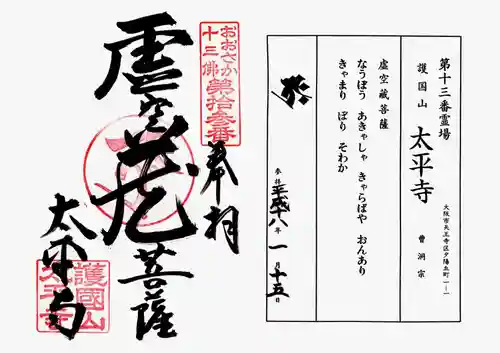 おおさか
十三佛第拾参番
奉拝
虚空蔵菩薩
太平寺
護國山
太平寺
第十三番霊場
護国山 太平寺
大阪市天王寺区夕陽丘町一-一
曹洞宗
虚空蔵菩薩
なうぼう あきゃしゃ きゃらばや おんあり
きゃまり ぼり そわか
参拝 平成十八年 一月十五日